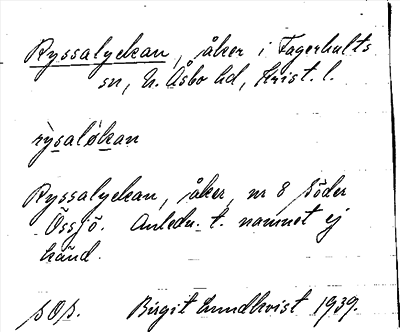 Ryssalyckan, åker i Fagerhults
sn, N. Åsbo hd, Krist. l.
rysaløkan
Ryssalyckan, åker, nr 8 Söder
Össjö. Anledn. t. namnet ej
känd.
Birgit Lundkvist 1939.